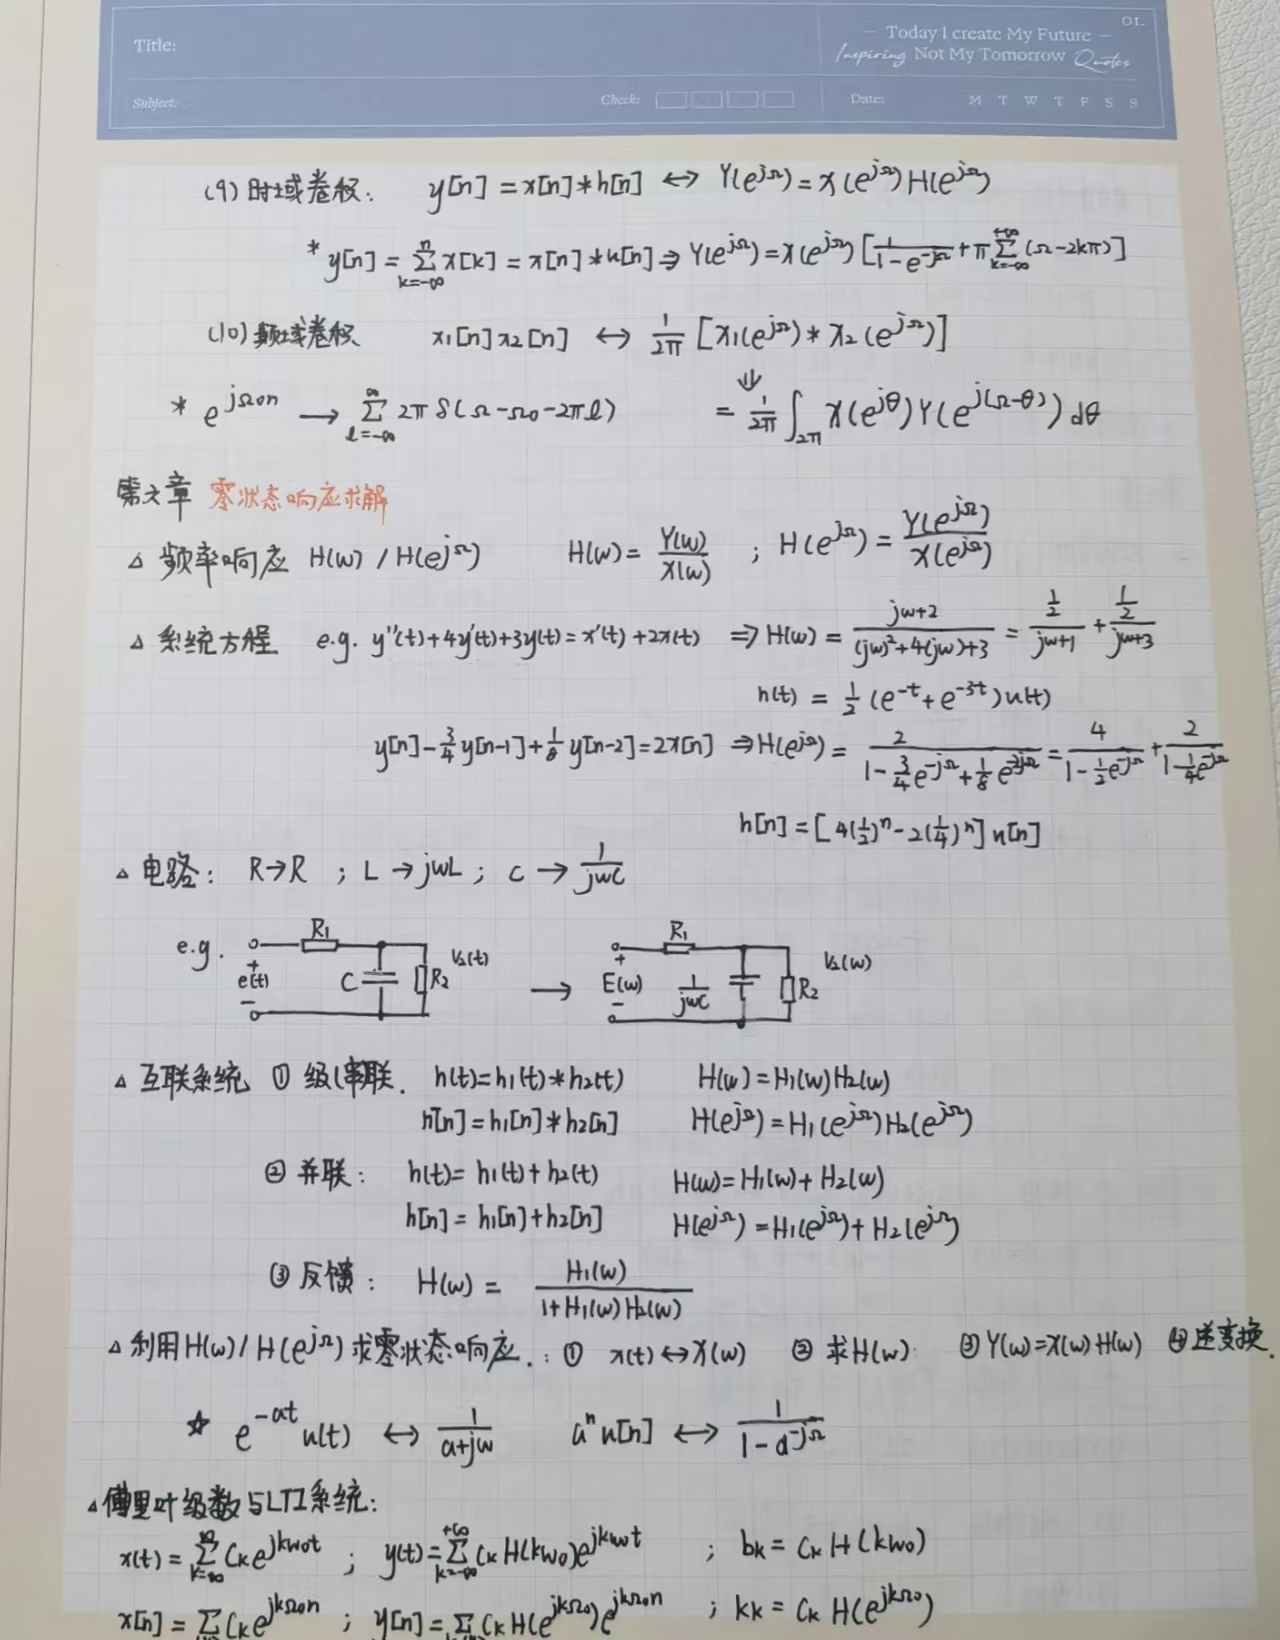 01.
Title:
— Today I create My Future —
Inspiring Not My Tomorrow Quotes
Subject: Check: Date: M T W T F S S
(9) 时域卷积: y[n] = x[n]*h[n] ↔ Y(e^{jΩ}) = X(e^{jΩ}) H(e^{jΩ})
* y[n] = \sum_{k=-∞}^{n} x[k] = x[n]*u[n] ⇒ Y(e^{jΩ}) = X(e^{jΩ}) [\frac{1}{1-e^{-jΩ}} + π\sum_{k=-∞}^{+∞} (Ω-2kπ)]
(10) 频域卷积 x₁[n] x₂[n] ↔ \frac{1}{2π} [X₁(e^{jΩ}) * X₂(e^{jΩ})]
⇓
* e^{jΩ₀n} → \sum_{l=-∞}^{∞} 2πδ(Ω-Ω₀-2πl) = \frac{1}{2π} ∫_{2π} X(e^{jθ}) Y(e^{j(Ω-θ)}) dθ
第六章 零状态响应求解
△ 频率响应 H(w) / H(e^{jΩ}) H(w) = \frac{Y(w)}{X(w)} ; H(e^{jΩ}) = \frac{Y(e^{jΩ})}{X(e^{jΩ})}
△ 系统方程 e.g. y''(t)+4y'(t)+3y(t) = x'(t)+2x(t) ⇒ H(w) = \frac{jw+2}{(jw)²+4(jw)+3} = \frac{\frac{1}{2}}{jw+1} + \frac{\frac{1}{2}}{jw+3}
h(t) = \frac{1}{2} (e^{-t}+e^{-3t}) u(t)
y[n] - \frac{3}{4} y[n-1] + \frac{1}{8} y[n-2] = 2x[n] ⇒ H(e^{jΩ}) = \frac{2}{1-\frac{3}{4}e^{-jΩ}+\frac{1}{8}e^{-2jΩ}} = \frac{4}{1-\frac{1}{2}e^{-jΩ}} + \frac{2}{1-\frac{1}{4}e^{-jΩ}}
h[n] = [4(\frac{1}{2})^n - 2(\frac{1}{4})^n] u[n]
△ 电路: R→R ; L→jwL ; C→\frac{1}{jwC}
e.g. R₁ + e(t) − C R₂ V₂(t) → R₁ + E(w) − \frac{1}{jwC} R₂ V₂(w)
△ 互联系统 ① 级(串联. h(t) = h₁(t)*h₂(t) H(w) = H₁(w)H₂(w)
h[n] = h₁[n]*h₂[n] H(e^{jΩ}) = H₁(e^{jΩ})H₂(e^{jΩ})
② 并联: h(t) = h₁(t)+h₂(t) H(w) = H₁(w)+H₂(w)
h[n] = h₁[n]+h₂[n] H(e^{jΩ}) = H₁(e^{jΩ})+H₂(e^{jΩ})
③ 反馈: H(w) = \frac{H₁(w)}{1+H₁(w)H₂(w)}
△ 利用H(w)/H(e^{jΩ})求零状态响应.: ① x(t)↔X(w) ② 求H(w) ③ Y(w)=X(w)H(w) ④ 逆变换.
☆ e^{-at} u(t) ↔ \frac{1}{a+jw} a^n u[n] ↔ \frac{1}{1-a^{-jΩ}}
△ 傅里叶级数与LTI系统:
x(t) = \sum_{k=-∞}^{∞} C_k e^{jkw₀t} ; y(t) = \sum_{k=-∞}^{+∞} C_k H(kw₀)e^{jkw₀t} ; b_k = C_k H(kw₀)
x[n] = \sum C_k e^{jkΩ₀n} ; y[n] = \sum C_k H(e^{jkΩ₀})e^{jkΩ₀n} ; k_k = C_k H(e^{jkΩ₀})